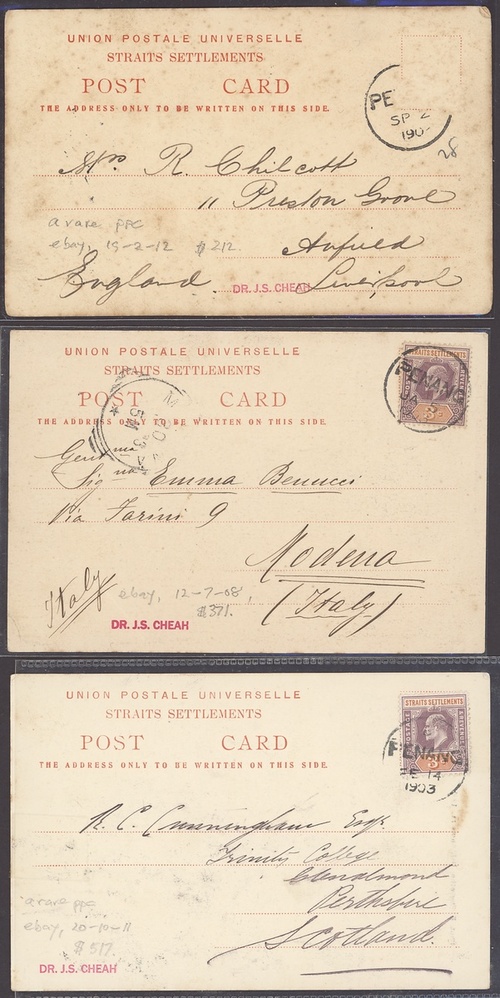 UNION POSTALE UNIVERSELLE
STRAITS SETTLEMENTS
POST CARD
THE ADDRESS ONLY TO BE WRITTEN ON THIS SIDE.
PE
SP 2
190
28
Mrs R. Chilcott
11 Preston Grove
a rare ppc
ebay, 19-2-12 $212.
Anfield
England Liverpool
DR. J.S. CHEAH
UNION POSTALE UNIVERSELLE
STRAITS SETTLEMENTS
POST CARD
THE ADDRESS ONLY TO BE WRITTEN ON THIS SIDE.
STRAITS SETTLEMENTS
PENANG
JA
3c
Gentma
Signa Emma Benucci
Via Farini 9
Modena
(Italy)
Italy
ebay, 12-7-08,
$371.
DR. J.S. CHEAH
UNION POSTALE UNIVERSELLE
STRAITS SETTLEMENTS
POST CARD
THE ADDRESS ONLY TO BE WRITTEN ON THIS SIDE.
STRAITS SETTLEMENTS
POSTAGE
PENANG
FE 14
1903
R. C. Cunninghame Esqr.
Trinity College
Glenalmond
Perthshire
Scotland.
a rare ppc
ebay, 20-10-11
$517.
DR. J.S. CHEAH